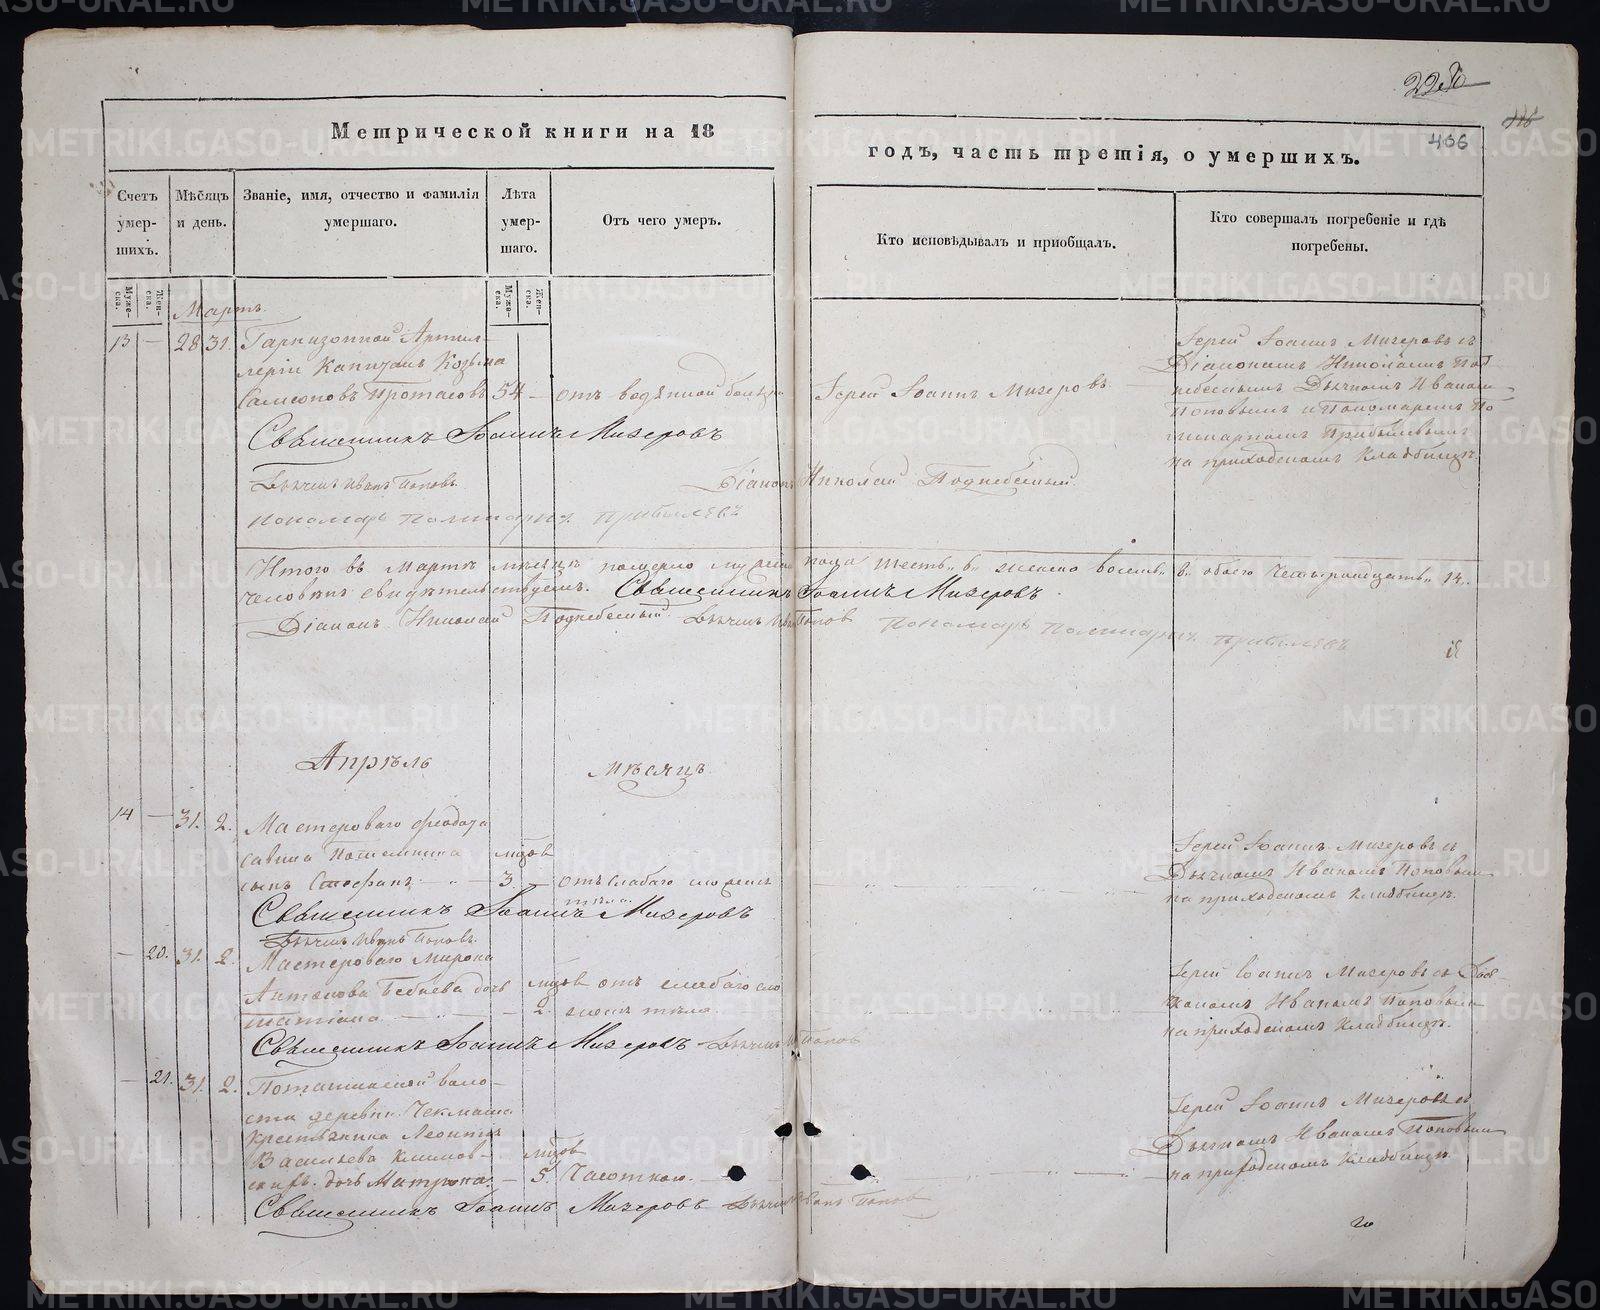 2230
406
Метрической книги на 18
годъ, часть третія, о умершихъ.
Счетъ умер-шихъ.
Мѣсяцъ и день.
Званіе, имя, отчество и фамилія умершаго.
Лѣта умер-шаго.
Отъ чего умеръ.
Кто исповѣдывалъ и приобщалъ.
Кто совершалъ погребеніе и гдѣ погребены.
Муже-ска.
Жен-ска.
Муже-ска.
Жен-ска.
Мартъ.
13 — 28 31. Гарнизонной Артил-
леріи Капитанъ Козьма
Самсоновъ Протасовъ 54 — отъ водяной болѣзни
Іерей Іоаннъ Мизеровъ
Іерей Іоаннъ Мизеровъ съ
Діакономъ Николаемъ Под-
небеснымъ Дьячкомъ Иваномъ
Поповымъ и Пономаремъ По
ликарпомъ Прибылевымъ
на приходскомъ кладбищѣ.
Священникъ Іоаннъ Мизеровъ
Дьячекъ Иванъ Поповъ
Діаконъ Николай Поднебесный
Пономарь Поликарпъ Прибылевъ
Итого въ Мартѣ мѣсяцѣ померло мужеска пола шесть 6 женска восемь 8 обоего четырнадцать 14.
человѣкъ свидѣтельствуемъ. Священникъ Іоаннъ Мизеровъ.
Діаконъ Николай Поднебесный Дьячекъ Иванъ Поповъ Пономарь Поликарпъ Прибылевъ
Апрѣль мѣсяцъ
14 — 31. 2. Мастероваго Феодота
Савина
сынъ Стефанъ — 3 — отъ слабаго сложенія
тѣла
Іерей Іоаннъ Мизеровъ съ
Дьячкомъ Иваномъ Поповымъ
на приходскомъ кладбищѣ.
Священникъ Іоаннъ Мизеровъ
Дьячекъ Иванъ Поповъ
— 20. 31. 2. Мастероваго Мирона
Антонова дочь отъ слабаго сло
Татіана — 2. женія тѣла
Іерей Іоаннъ Мизеровъ съ Дьяч-
комъ Иваномъ Поповымъ
на приходскомъ кладбищѣ.
Священникъ Іоаннъ Мизеровъ Дьячекъ Иванъ Поповъ
— 21. 31. 2. Поташинской воло-
сти деревни Чекмаша
крестьянина Леонтія
Васильева Климов-
скихъ дочь Матрона — 5. Чахоткою.
Іерей Іоаннъ Мизеровъ съ
Дьячкомъ Иваномъ Поповымъ
на приходскомъ кладбищѣ.
Священникъ Іоаннъ Мизеровъ Дьячекъ Иванъ Поповъ
METRIKI.GASO-URAL.RU